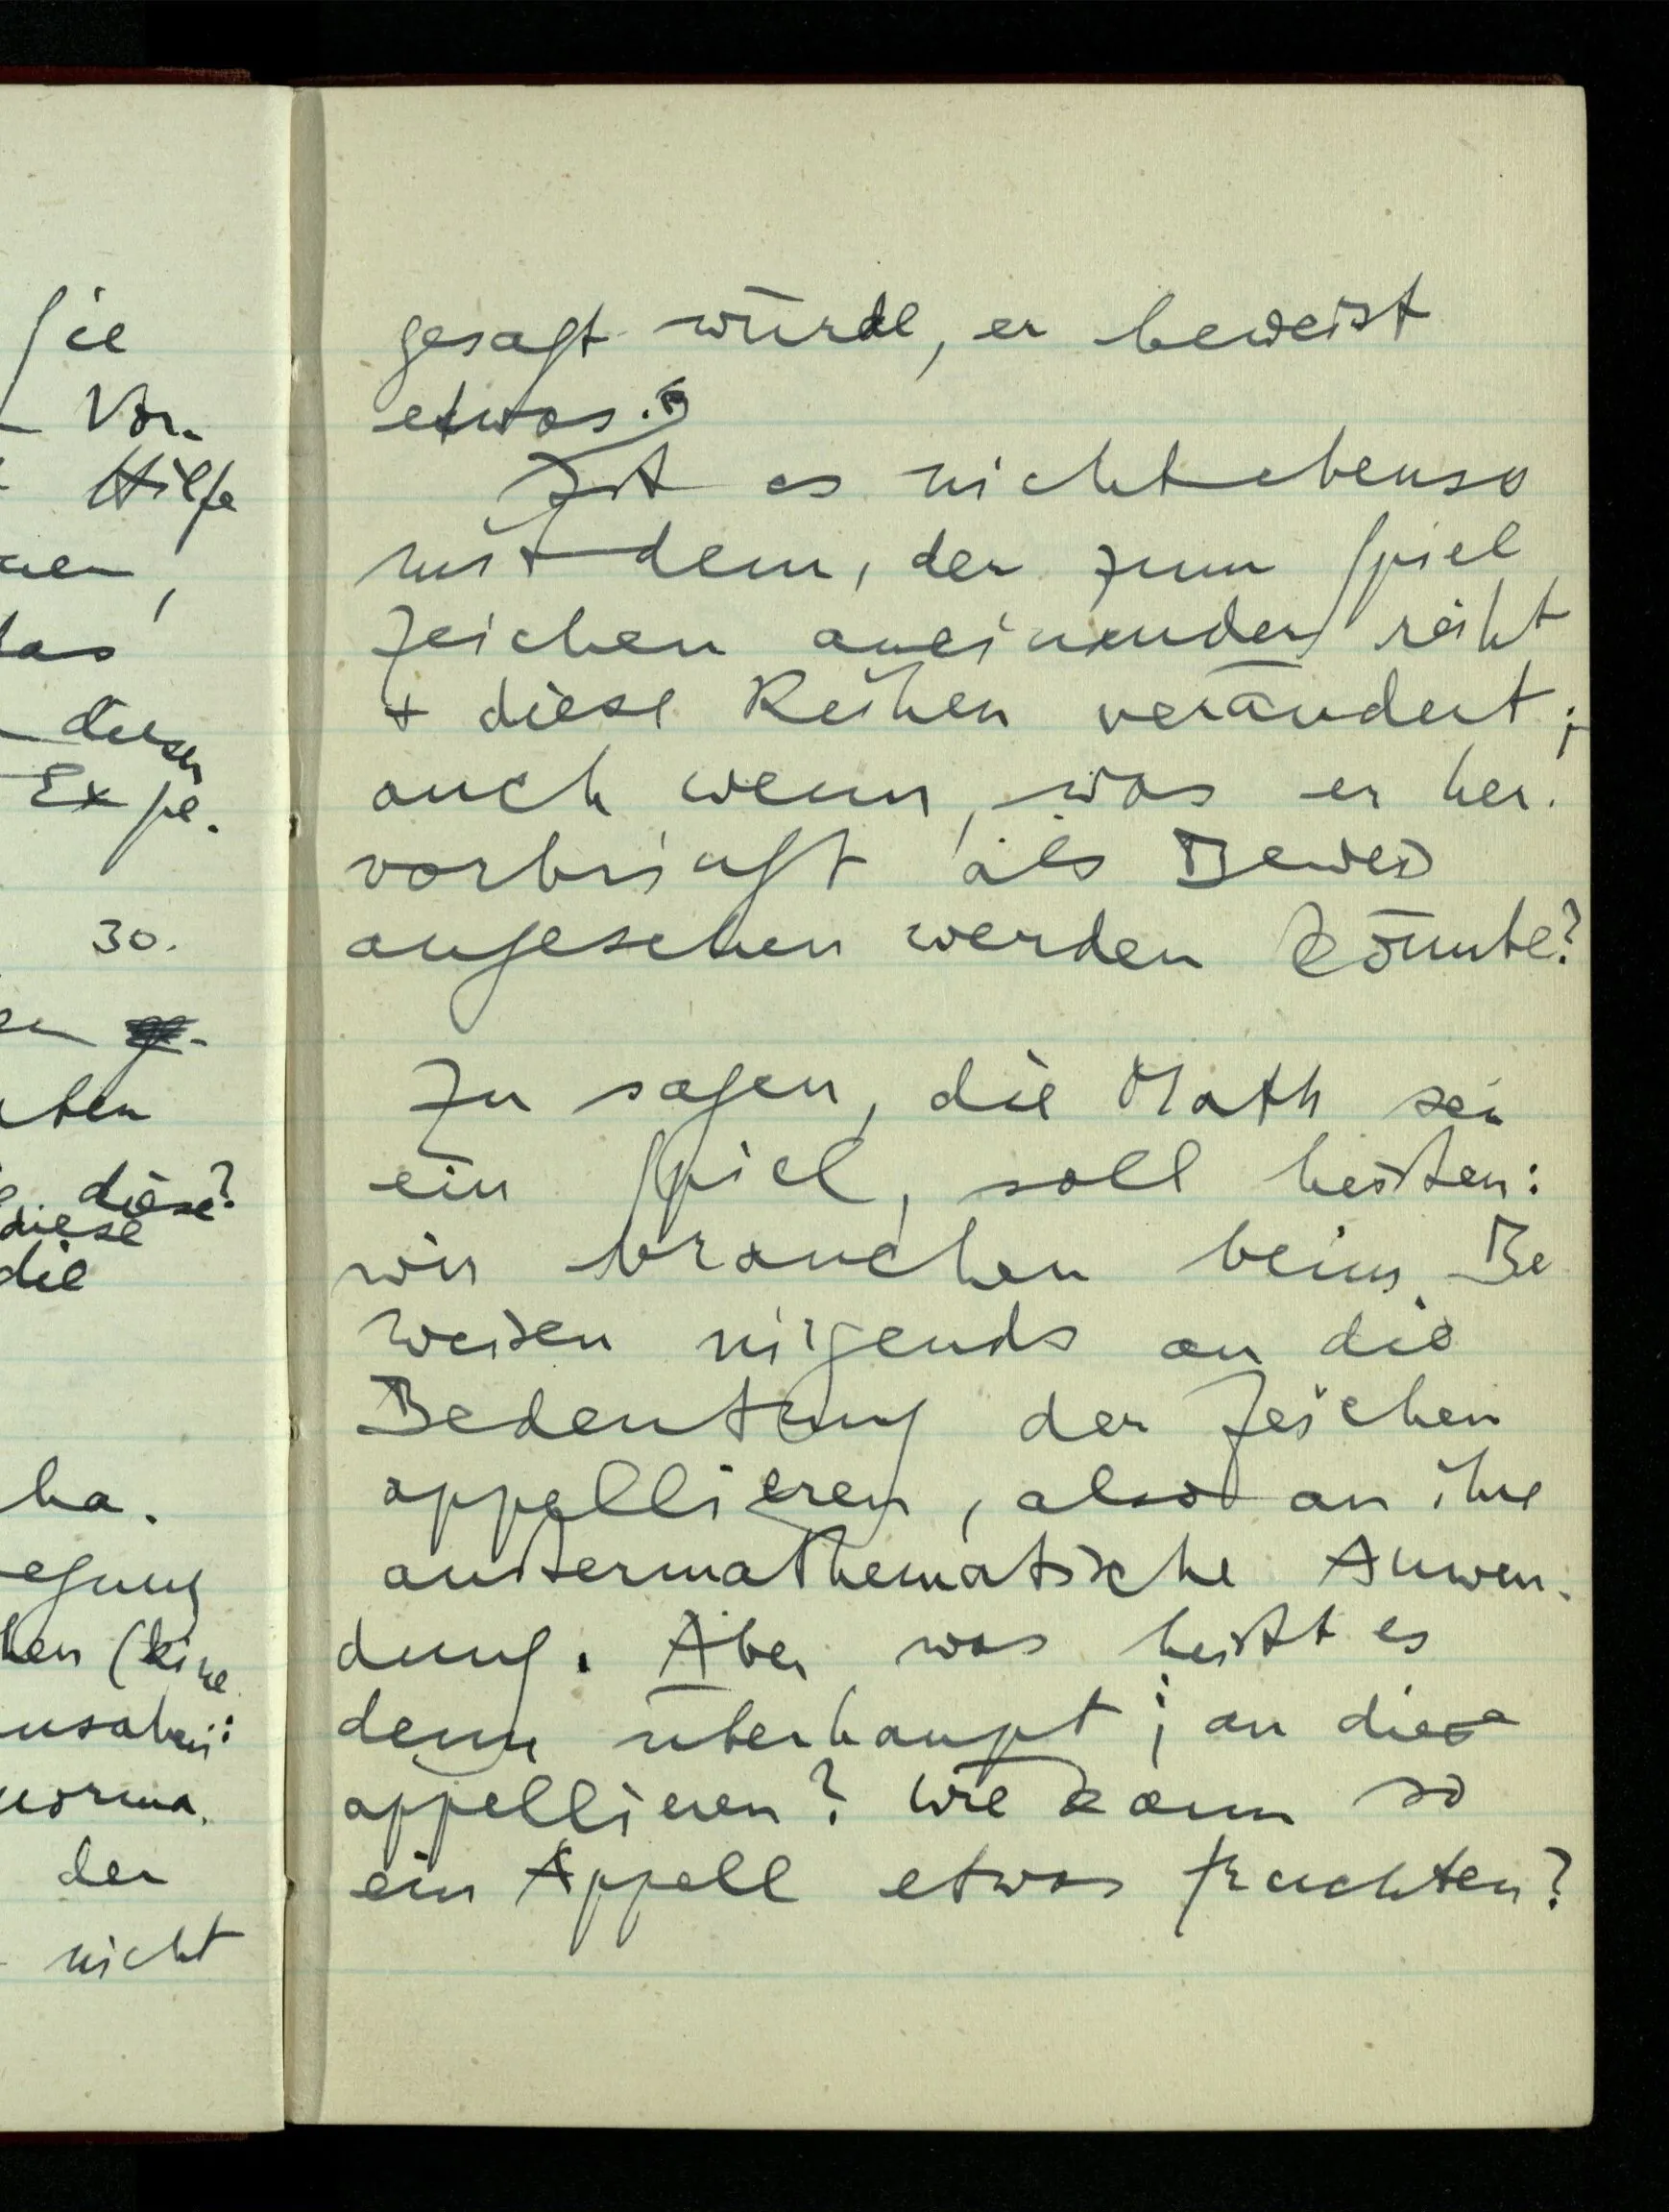 Sie
Vor-
Hilfe
das
dieser
Expe-
30.
diese?
diese
die
ha-
egung
(eine
norma-
der
nicht
gesagt würde, er beweist
etwas.
Ist es nicht ebenso
mit dem, der zum Spiel
Zeichen aneinander reiht
+ diese Reihen verändert;
auch wenn, was er her-
vorbringt als Beweis
angesehen werden könnte?
Zu sagen, die Math sei
ein Spiel, soll heißen:
wir brauchen beim Be
weisen nirgends an die
Bedeutung der Zeichen
appellieren, also an ihre
außermathematische Anwen-
dung. Aber was heißt es
denn überhaupt; an diese
appellieren? Wie kann so
ein Appell etwas fruchten?